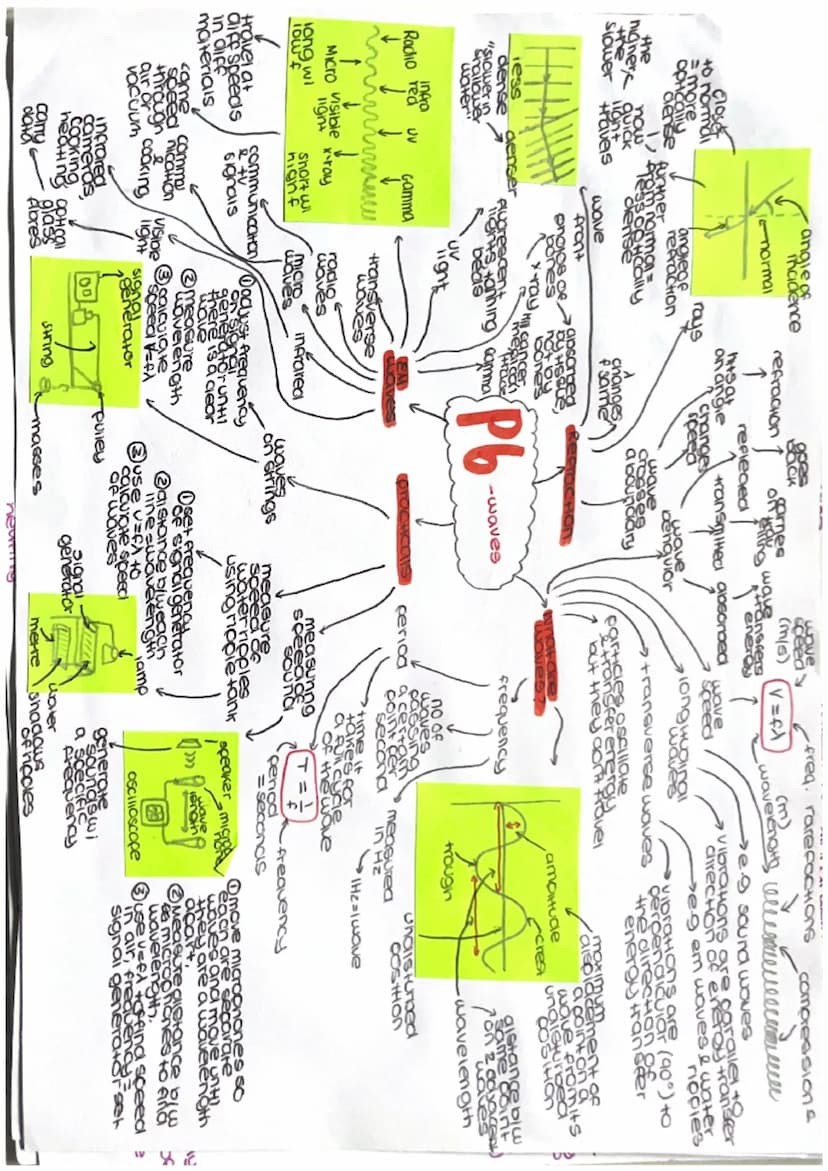 P6
-waves
REFRACTION
wave
front
changes
λ
f same
rays
angle of
incidence
normal
angle of
refraction
close
to normal
= more
optically
dense
further
from normal =
less optically
dense
how
quick
light
travels
the
the
slower
less
dense
denser
"slower in
shallower
water"
wave
crosses
a boundary
changes
speed
hits at
an angle
refraction
wave
behaviour
reflected
goes
back
transmitted
carries
on
absorbed
transfers
wave
energy
what are
waves?
particles oscillate
& transfer energy
but they don't travel
transverse waves
vibrations are
perpendicular (90°) to
the direction of
energy transfer
e.g em waves & water
ripples
longitudinal
waves
vibrations are parallel to
direction of energy transfer
e.g sound waves
rarefactions
compressions
wave
speed
V = fλ
wave
speed
(m/s)
freq.
wavelength
(m)
amplitude
crest
trough
maximum
displacement of
a point on a
wave from its
undisturbed
position
distance b/w
same point
on 2 adjacent
waves
wavelength
undisturbed
position
frequency
no of
waves
passing
a certain
point per
second
measured
in Hz
1Hz = 1 wave
period
time it
takes for
a full cycle
of the wave
T = 1/f
period
= seconds
frequency
EM
waves
gamma
kill cancer
medical
tracers
x-ray
absorbed
by tissue,
not by
bones
images of
bones
uv
light
fluorescent
lights, tanning
beds
Radio
Micro
infra
red
visible
light
uv
x-ray
Gamma
long wl
low f
short wl
high f
transverse
waves
travel at
diff speeds
in diff
materials
same
speed
through
air or
vacuum
radio
waves
communication
& TV
signals
micro
waves
communication
&
cooking
infrared
infrared
cameras,
cooking
heating
visible
light
optical
glass
fibres
carry
data
practicals
waves
on strings
① adjust frequency
on signal
generator until
there is a clear
wave
② measure
wavelength
③ calculate
speed V=fλ
signal
generator
string
pulley
masses
measure
speed of
water ripples
using ripple tank
① set frequency
of signal generator
② distance b/w each
line = wavelength
③ use v=fλ to
calculate speed
of waves
signal
generator
lamp
water
metre
shadows
of ripples
measuring
speed of
sound
speaker
micro
phone
wave
length
oscilloscope
generate
sounds w/
a specific
frequency
① move microphones so
each are separate
wave and move until
they are a wavelength
apart.
② measure distance b/w
the microphones to find
wavelength.
③ use v=fλ to find speed
in air, frequency = set
signal generator